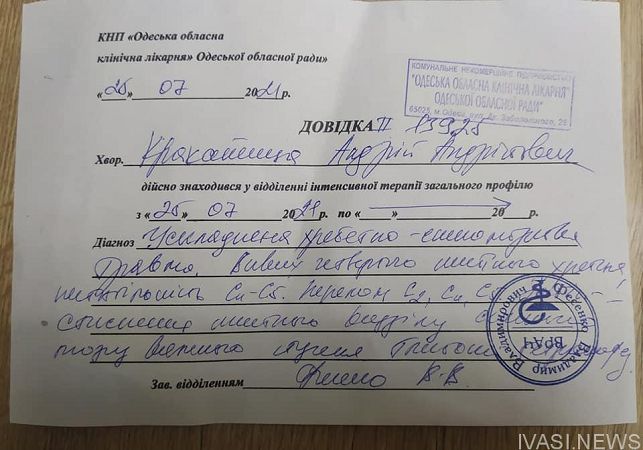 КНП «Одеська обласна
клінічна лікарня» Одеської обласної ради»
КОМУНАЛЬНЕ НЕКОМЕРЦІЙНЕ ПІДПРИЄМСТВО
"ОДЕСЬКА ОБЛАСНА КЛІНІЧНА ЛІКАРНЯ"
ОДЕСЬКОЇ ОБЛАСНОЇ РАДИ"
65025, м.Одеса, вул. Ак. Заболотного, 26
«25» 07 2021р.
ДОВІДКА 13925
Хвор. Андрій Андрійович
дійсно знаходився у відділенні інтенсивної терапії загального профілю
з «25» 07 2021р. по «    » 20 р.
Діагноз Ускладнена хребетно-спиномозкова
травма. Вивих четвертого шийного хребця
нестабільність С4-С5. Перелом С4, С5
стиснення шийного відділу
важкого ступеня
Зав. відділенням В.В.
Фесенко Владимир Владимирович
ВРАЧ
IVASI.NEWS